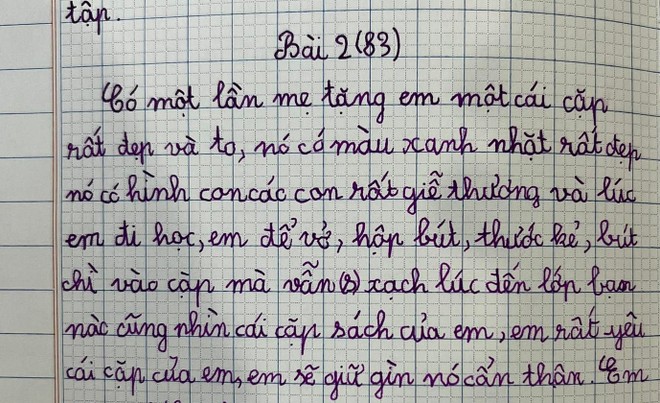 tập.
Bài 2 (83)
Có một lần mẹ tặng em một cái cặp
rất đẹp và to, nó có màu xanh nhặt rất đẹp
nó có hình con các con rất giễ thương và lúc
em đi học, em để vở, hộp bút, thước kẻ, bút
chì vào cặp mà vẫn (s) xạch lúc đến lớp bạn
nào cũng nhìn cái cặp sách của em, em rất yêu
cái cặp của em, em sẽ giữ gìn nó cẩn thân. Em